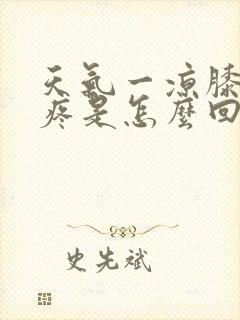 天氣一凉膝
疼是怎麼回
史先斌